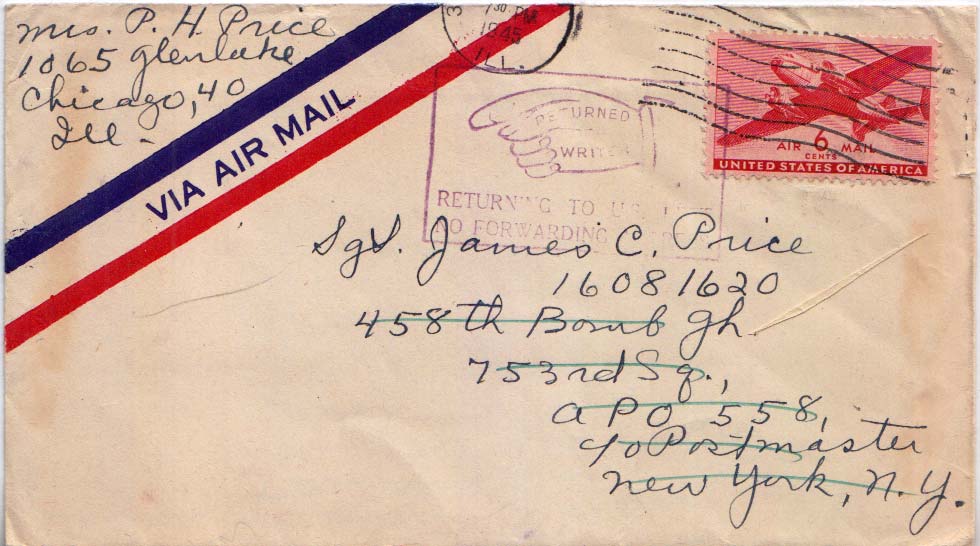 Mrs. P. H. Price
1065 Glenlake
Chicago, 40
Ill -
VIA AIR MAIL
7 30 PM
1945
ILL.
RETURNED
WRITER
RETURNING TO U.S.
NO FORWARDING
AIR 6 MAIL
CENTS
UNITED STATES OF AMERICA
Sgt. James C. Price
16081620
458th Bomb Gh.
753rd Sq.,
APO 558,
c/o Postmaster
New York, N.Y.